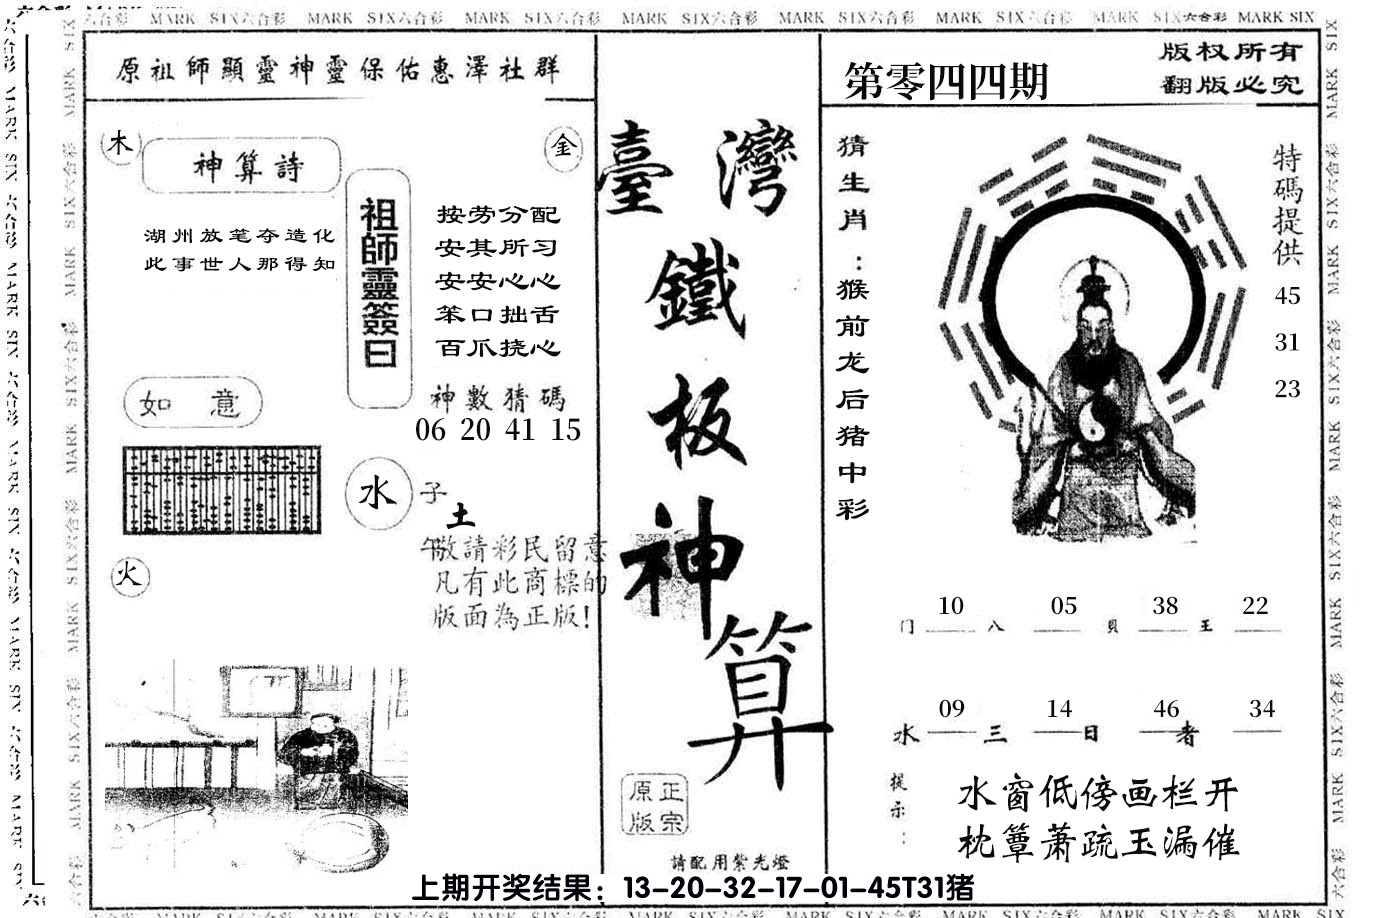 原祖師顯靈神靈保佑惠澤社群
木
金
神算詩
湖州放笔夺造化
此事世人那得知
祖師靈簽曰
按劳分配
安其所习
安安心心
笨口拙舌
百爪挠心
如意
神數猜碼
06 20 41 15
水
子
土
午
敬請彩民留意
凡有此商標的
版面為正版!
火
臺灣
鐵
板
神
算
正宗
原版
請配用紫光燈
第零四四期
版权所有
翻版必究
猜生肖：猴前龙后猪中彩
特碼提供
45
31
23
10 05 38 22
门 八 貝 王
09 14 46 34
水 三 日 者
提示：
水窗低傍画栏开
枕簟萧疏玉漏催
上期开奖结果：13-20-32-17-01-45T31猪
MARK SIX六合彩 MARK SIX六合彩 MARK SIX六合彩 MARK SIX六合彩 MARK SIX六合彩 MARK SIX六合彩 MARK SIX六合彩 MARK SIX